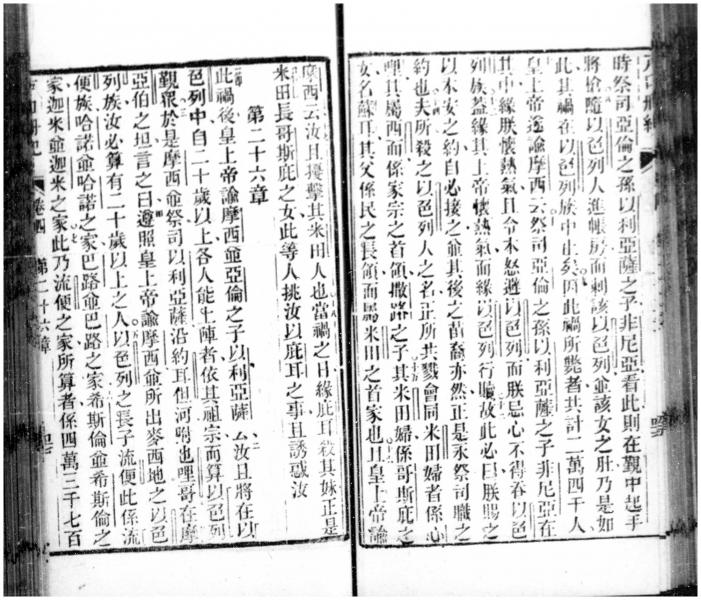 時祭司亞倫之孫以利亞薩之子非尼亞看此則在覲中起手
將槍隨以色列人進帳房而刺該以色列並該女之肚乃是如
此其禍在以色列族中止矣因此禍所斃者共計二萬四千人
皇上帝遂諭摩西云祭司亞倫之孫以利亞薩之子非尼亞在
其中緣朕懷熱氣且令本怒避以色列而朕忌心不得吞以色
列族葢緣其上帝懷熱氣而緣以色列行贖故此必曰朕賜之
以本安之約自必接之爺其後之苗裔亦然正是永祭司職之
約也夫所殺之以色列人之名正所共戮會同米田婦者係心
哩其屬西而係家宗之首領撒路之子其米田婦係哥斯庇之
女名蘇耳其父係民之長領而屬米田之首家也且皇上帝諭
摩西云汝且擾擊其米田人也當禍之日緣庇耳殺其妹正是
米田長哥斯庇之女此等人挑汝以庇耳之事且誘惑汝
第二十六章
此禍後皇上帝諭摩西爺亞倫之子以利亞薩云汝且將在以
色列中自二十歲以上各人能上陣者依其祖宗而算以色列
覲眾於是摩西爺祭司以利亞薩沿約耳但河附也哩哥在摩
亞伯之坦言之曰遵照皇上帝諭摩西爺所出麥西地之以色
列族汝必算有二十歲以上之人以色列之長子流便此係流
便族哈諾爺哈諾之家巴路爺巴路之家希斯倫爺希斯倫之
家迦米爺迦米之家此乃流便之家所算者係四萬三千七百
卷四 第二十六章